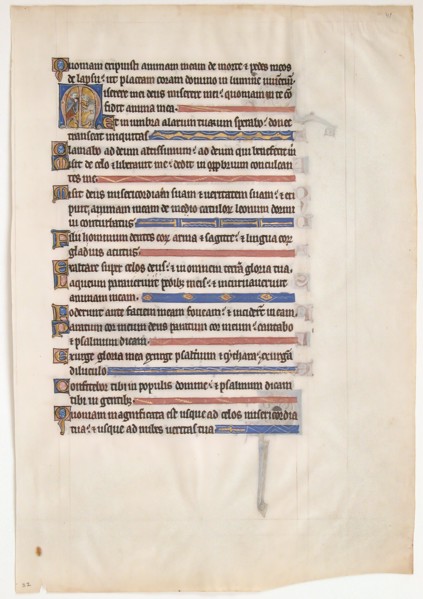 Quoniam eripuisti animam meam de morte et pedes meos
de lapsu: ut placeam coram domino in lumine
Miserere mei deus miserere mei: quoniam in te con
fidit anima mea.
Et in umbra alarum tuarum sperabo: donec
transeat iniquitas
Clamabo ad deum altissimum: ad deum qui benefecit m
Misit de celo et liberauit me: dedit in opprobrium conculcan
tes me
Misit deus misericordiam suam et ueritatem suam: et eri
puit animam meam de medio catulor leonum dormi
ui conturbatus
Filii hominum dentes eor arma et sagitte: et lingua eor
gladius acutus
Exaltare super celos deus: et in omnem terram gloria tua
Laqueum parauerunt pedib meis: et incuruauerunt
animam meam
Foderunt ante faciem meam foueam: et inciderunt in eam
Paratum cor meum deus paratum cor meum: cantabo
et psalmum dicam
Exurge gloria mea exurge psalterium et cythara: exurgam
diluculo
Confitebor tibi in populis domine: et psalmum dicam
tibi in gentib
Quoniam magnificata est usque ad celos misericordia
tua: et usque ad nubes ueritas tua